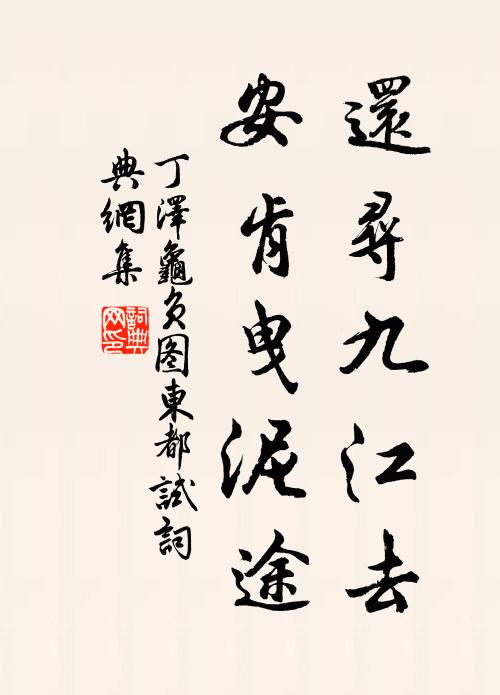 還尋九江去
安肯曳泥途
丁澤龜負图東都試詞
典網集
詞典
网印